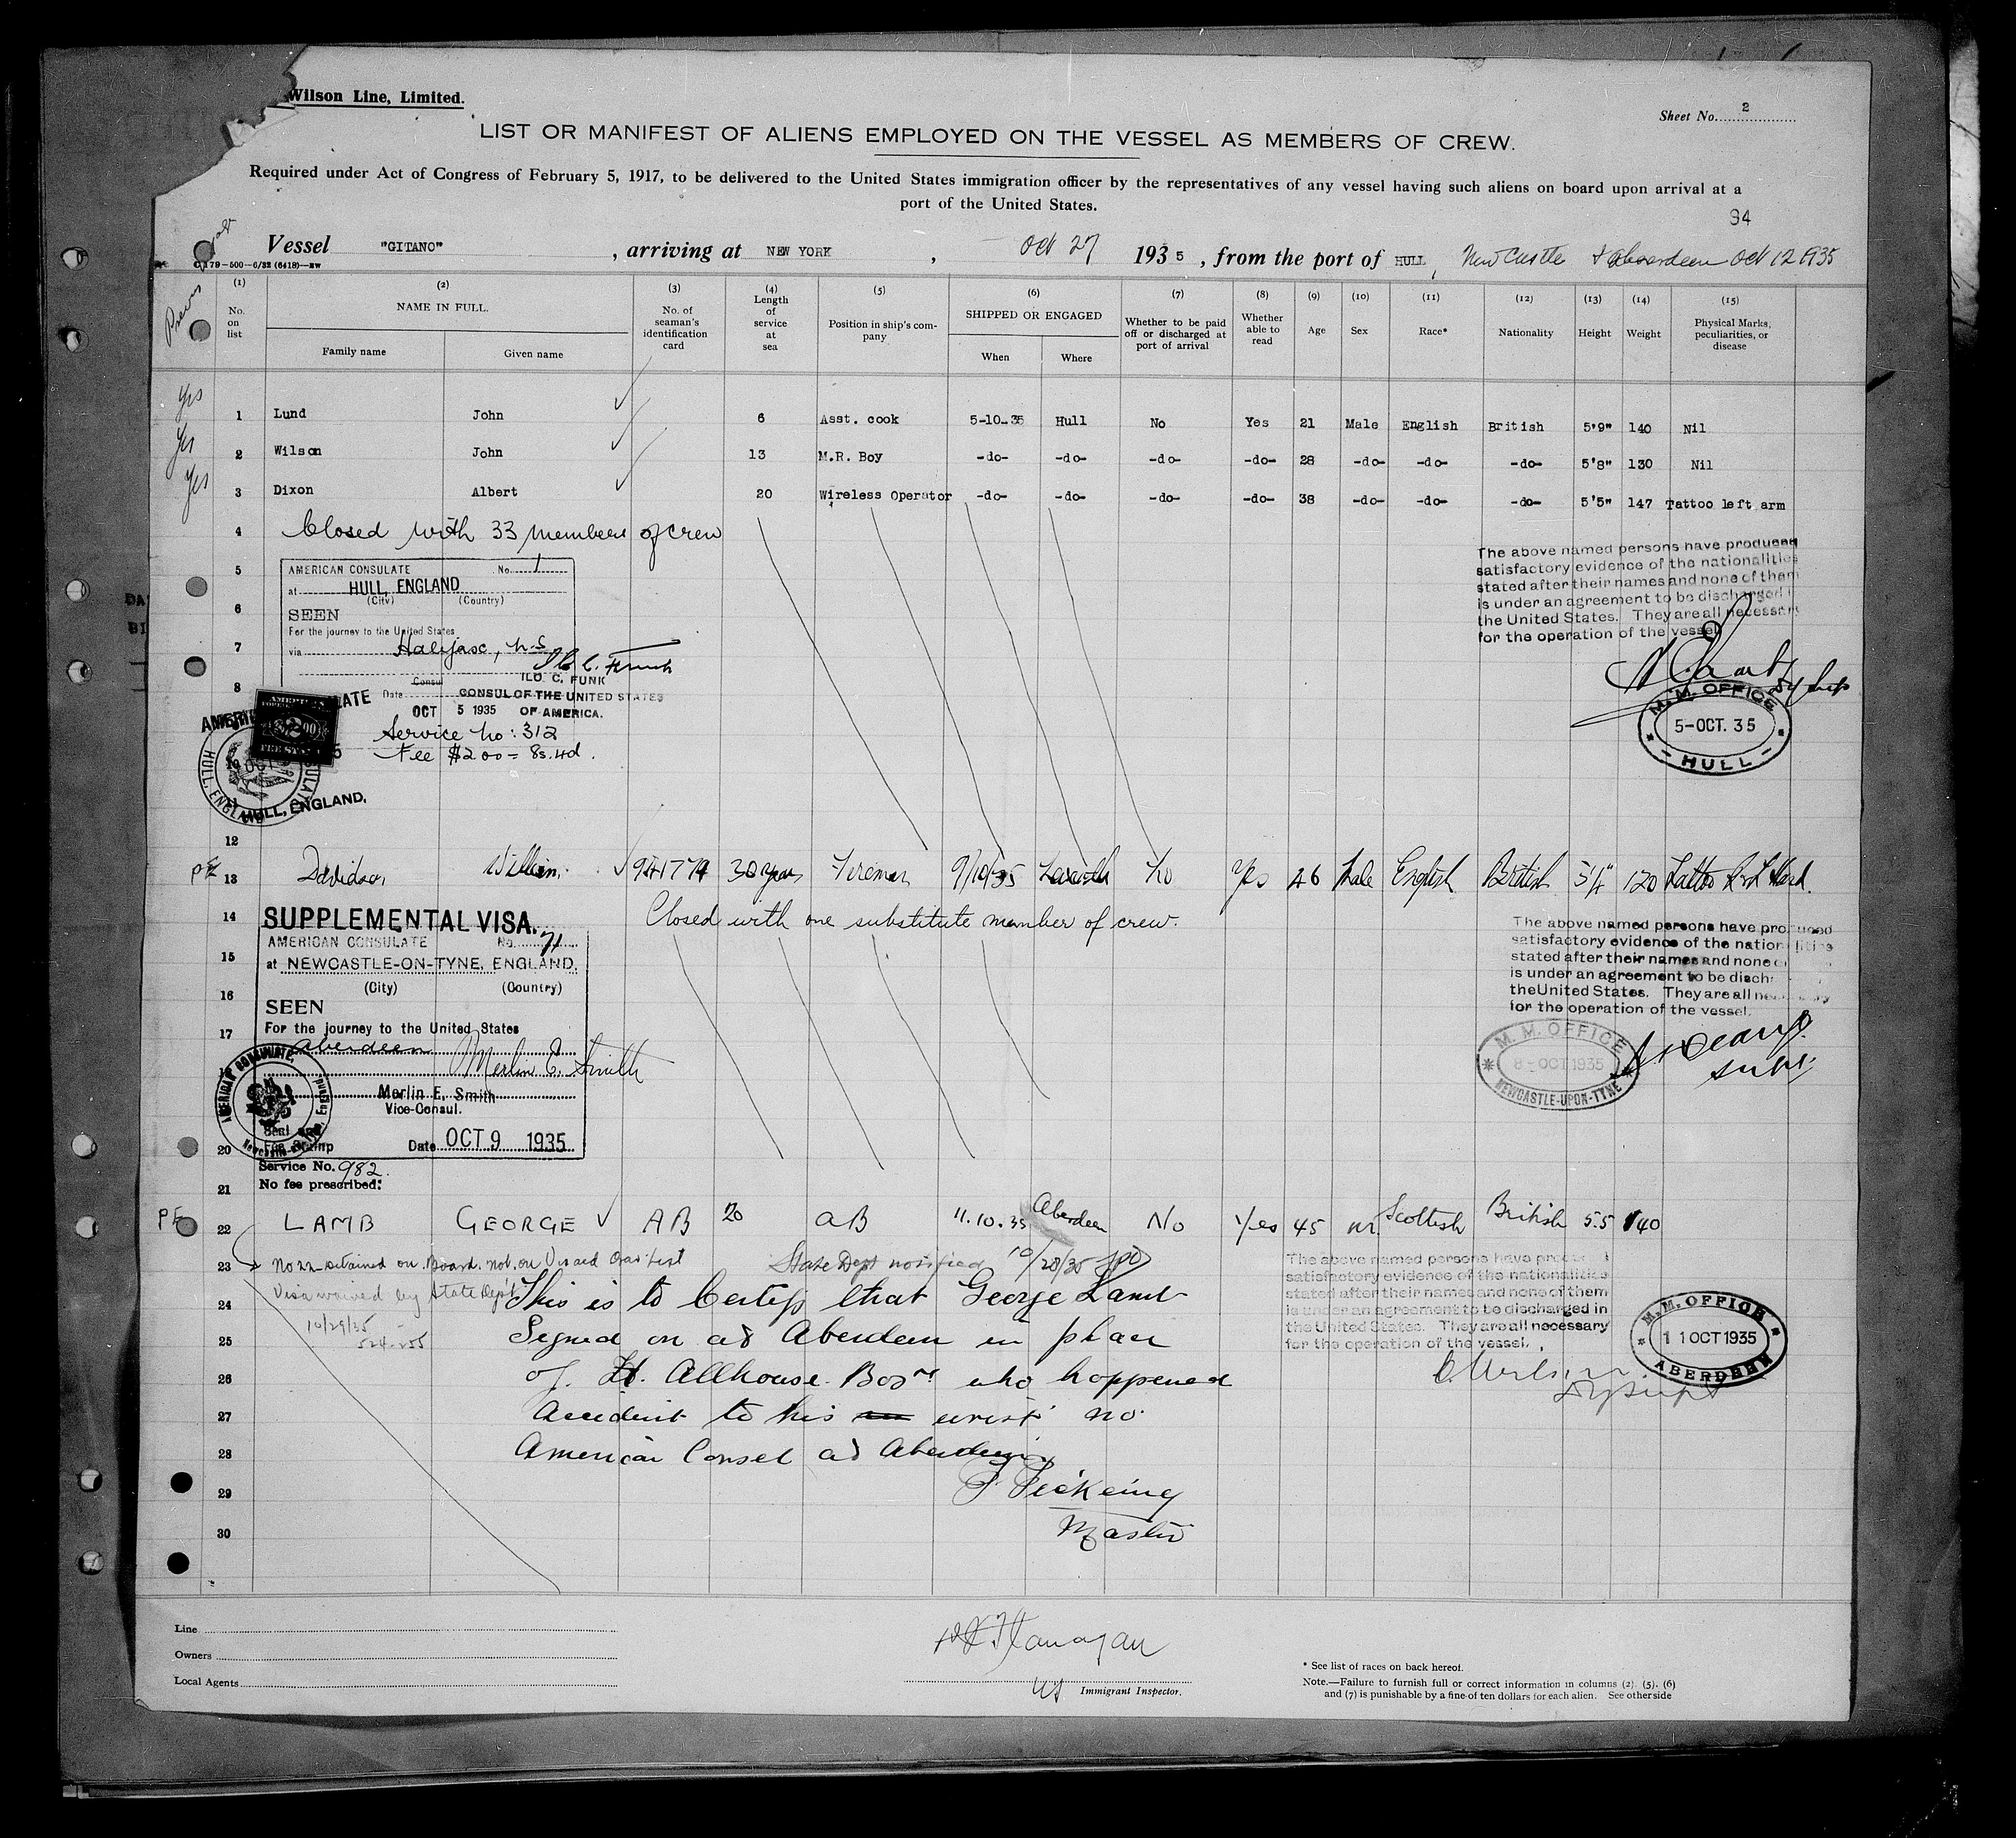 Wilson Line, Limited.
Sheet No. 2
LIST OR MANIFEST OF ALIENS EMPLOYED ON THE VESSEL AS MEMBERS OF CREW.
Required under Act of Congress of February 5, 1917, to be delivered to the United States immigration officer by the representatives of any vessel having such aliens on board upon arrival at a
port of the United States.
94
Vessel "GITANO", arriving at NEW YORK, Oct 27 1935, from the port of HULL, New Castle & Aberdeen Oct 12 1935
(1) (2) (3) (4) (5) (6) (7) (8) (9) (10) (11) (12) (13) (14) (15)
No. on list NAME IN FULL. Family name Given name No. of seaman's identification card Length of service at sea Position in ship's company SHIPPED OR ENGAGED When Where Whether to be paid off or discharged at port of arrival Whether able to read Age Sex Race* Nationality Height Weight Physical Marks, peculiarities, or disease
Yes 1 Lund John 6 Asst. cook 5-10-35 Hull No Yes 21 Male English British 5'9" 140 Nil
Yes 2 Wilson John 13 M.R. Boy -do- -do- -do- -do- 28 -do- -do- -do- 5'8" 130 Nil
Yes 3 Dixon Albert 20 Wireless Operator -do- -do- -do- -do- 38 -do- -do- -do- 5'5" 147 Tattoo left arm
4 Closed with 33 members of crew
5
6
7
8
AMERICAN CONSULATE No. 1
at HULL, ENGLAND
(City) (Country)
SEEN
For the journey to the United States
via Halifax, N.S.
ILO C. FUNK
Consul
Date CONSUL OF THE UNITED STATES
OCT 5 1935 OF AMERICA.
Service No: 312
Fee $2.00 = 8s.4d.
HULL, ENGLAND.
The above named persons have produced
satisfactory evidence of the nationalities
stated after their names and none of them
is under an agreement to be discharged in
the United States. They are all necessary
for the operation of the vessel
M.M. OFFICE
5-OCT. 35
HULL
12
PE 13 Davidson William 941774 30 years Fireman 9/10/35 No Yes 46 Male English British 5'4" 120 Tattoo
14 Closed with one substitute member of crew.
15
16
17
20
21
SUPPLEMENTAL VISA.
AMERICAN CONSULATE No. 71
at NEWCASTLE-ON-TYNE, ENGLAND.
(City) (Country)
SEEN
For the journey to the United States
Aberdeen
Merlin E. Smith
Merlin E. Smith
Vice-Consul.
Seal and
Fee Stamp Date OCT 9 1935
AMERICAN CONSULATE,
Service No. 982.
No fee prescribed:
The above named persons have produced
satisfactory evidence of the nationalities
stated after their names and none
is under an agreement to be
the United States. They are all
for the operation of the vessel.
M. M. OFFICE
8-OCT 1935
NEWCASTLE-UPON-TYNE
PE 22 LAMB GEORGE AB 20 AB 11.10.35 Aberdeen No Yes 45 M. Scottish British 5.5 140
23 No 22 detained on Board. not on Visaed Crew List State Dept notified 10/28/35
Visa waived by State Dept
10/29/35
24 This is to Certify that George Lamb
25 Signed on at Aberdeen in place
26 of H. Allhouse Bosn who happened
27 Accident to his wrist no
28 American Consel at Aberdeen
29 Pickering
30 Master
The above named persons have produced
satisfactory evidence of the nationalities
stated after their names and none of them
is under an agreement to be discharged in
the United States. They are all necessary
for the operation of the vessel.
M.M. OFFICE
11 OCT 1935
ABERDEEN
Line
Owners
Local Agents
Flanagan
Immigrant Inspector.
* See list of races on back hereof.
Note.—Failure to furnish full or correct information in columns (2), (5), (6)
and (7) is punishable by a fine of ten dollars for each alien. See other side